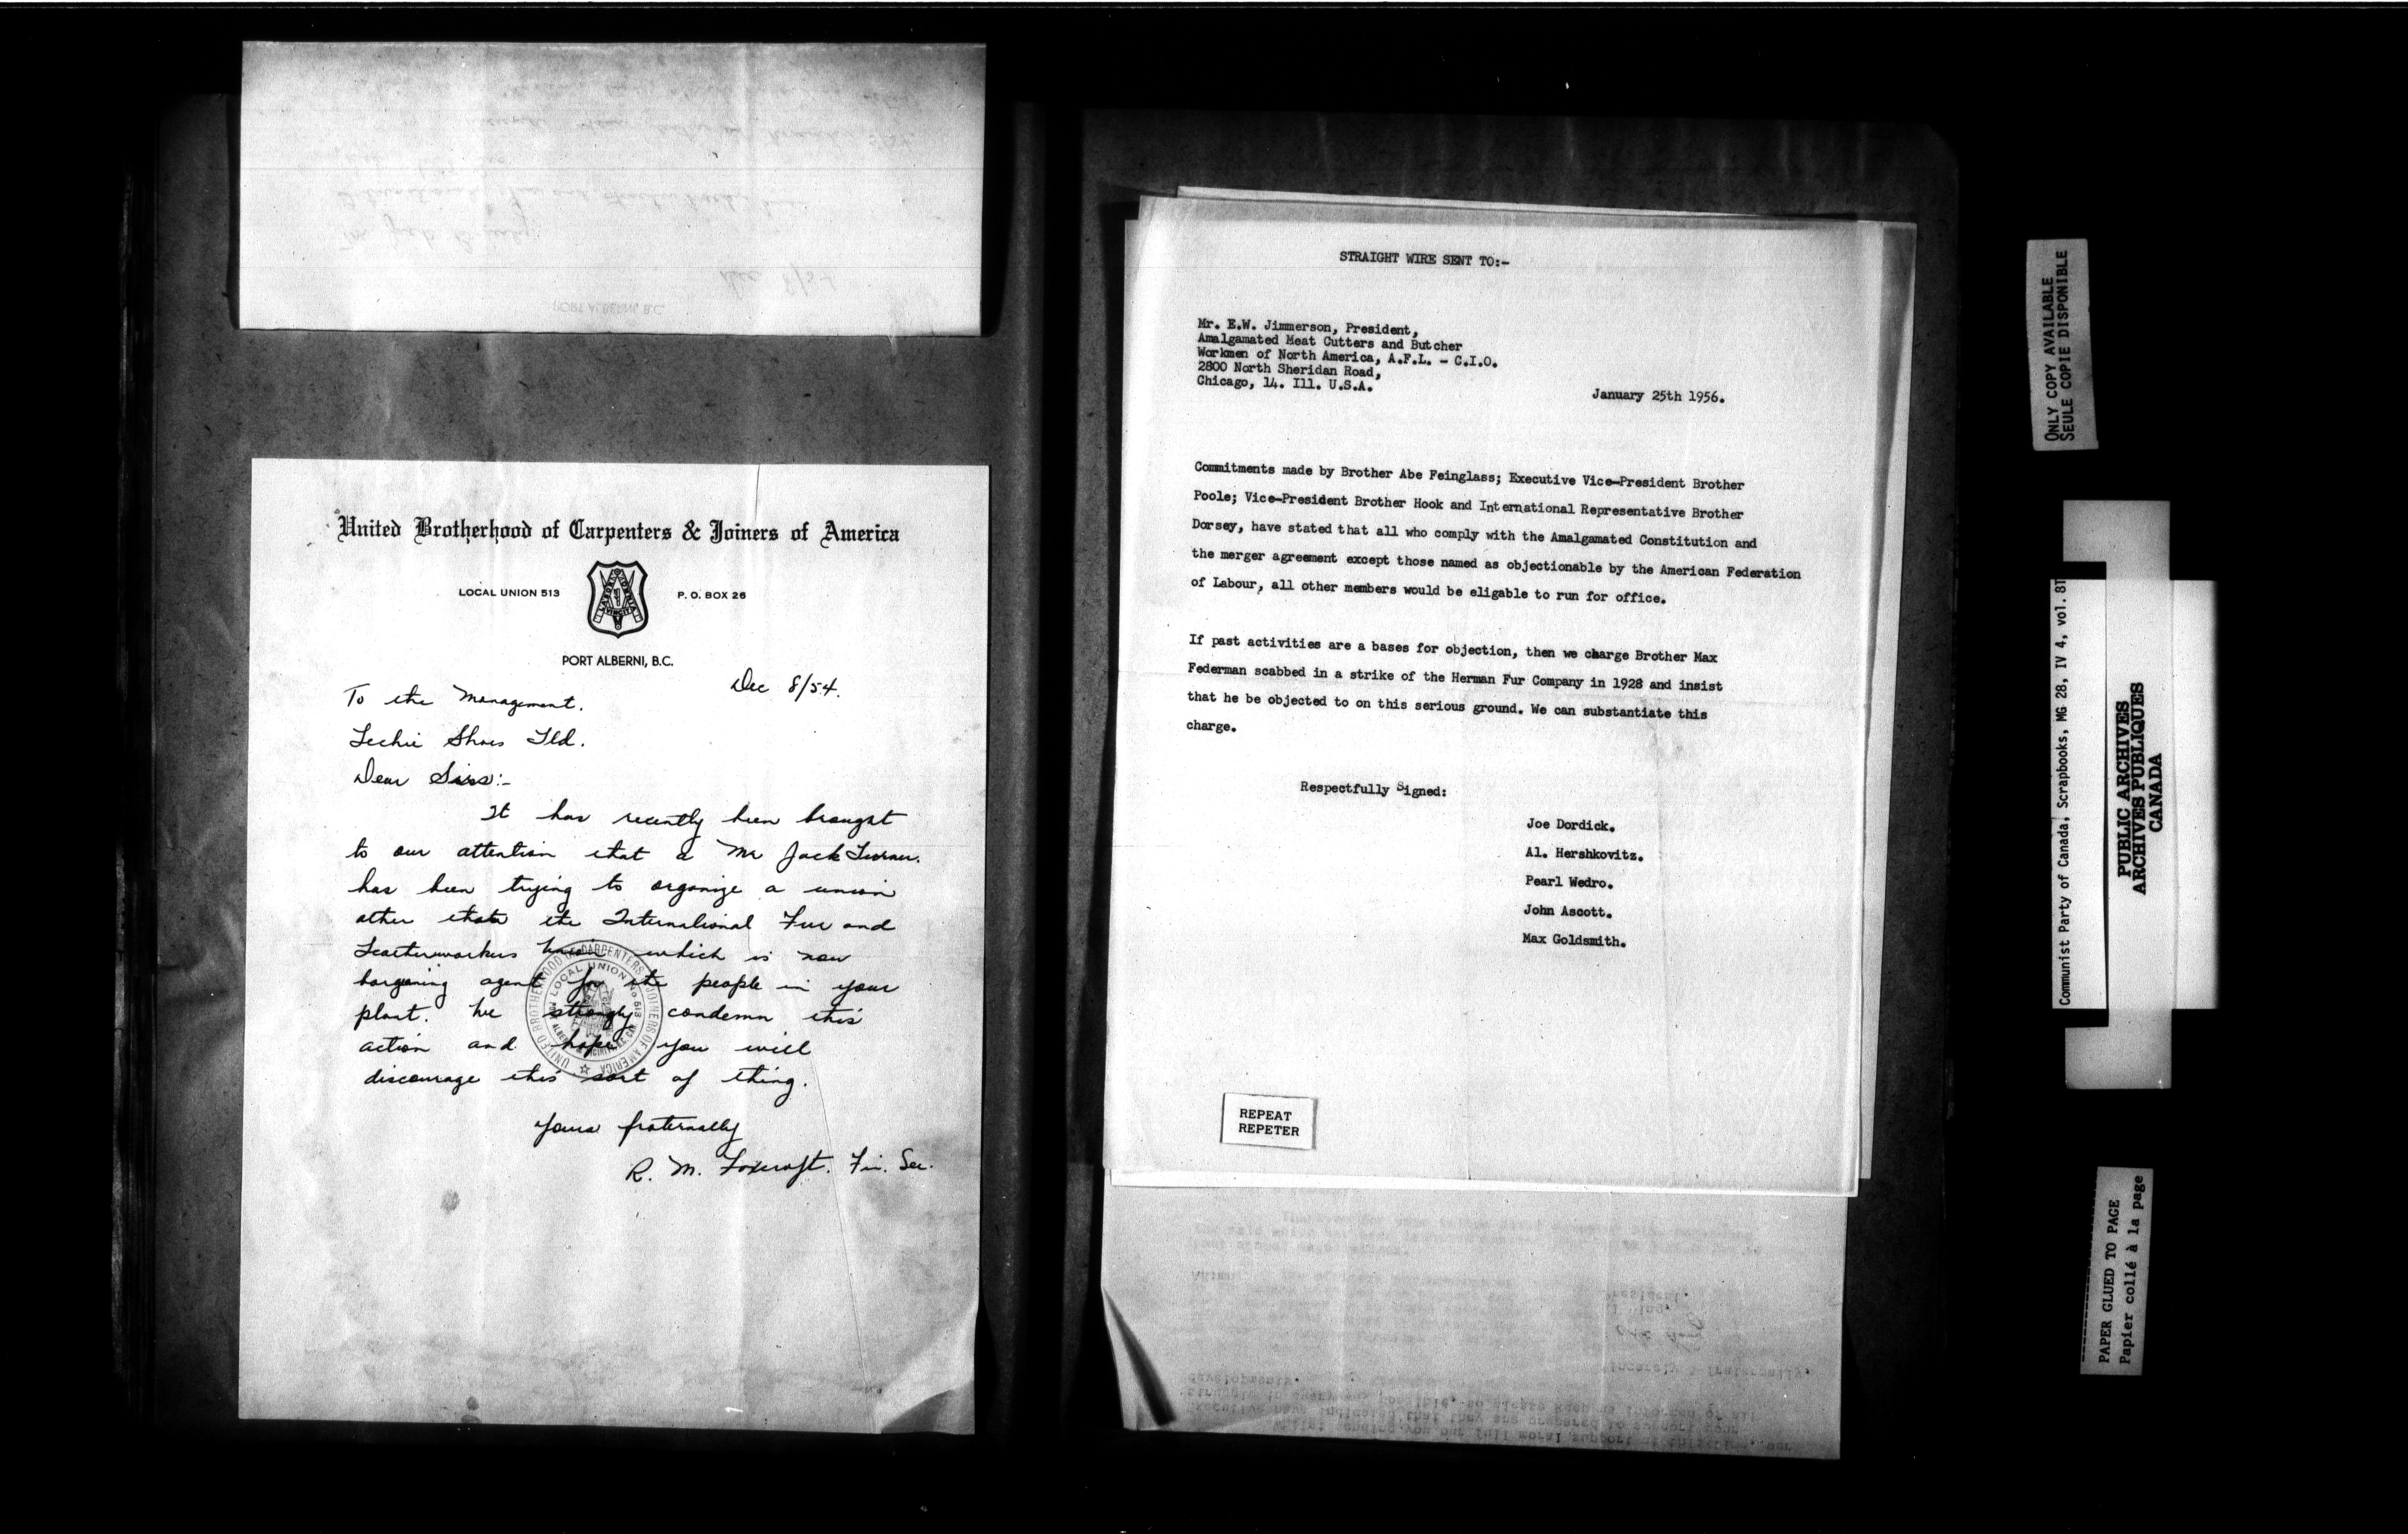 United Brotherhood of Carpenters & Joiners of America
LOCAL UNION 513
LABOR OMNIA VINCIT
P. O. BOX 26
PORT ALBERNI, B.C.
Dec 8/54.
To the Management.
Leckie Shoes Ltd.
Dear Sirs:-
It has recently been brought
to our attention that a Mr Jack Turner.
has been trying to organize a union
other than the International Fur and
Leatherworkers Union which is now
bargaining agent for the people in your
plant. We strongly condemn this
action and hope you will
discourage this sort of thing.
Yours fraternally
R. M. Foxcroft. Fin. Sec.
UNITED BROTHERHOOD OF CARPENTERS & JOINERS OF AMERICA
LOCAL UNION No 513
PORT ALBERNI, B.C.
Dec 8/54
STRAIGHT WIRE SENT TO:-
Mr. E.W. Jimmerson, President,
Amalgamated Meat Cutters and Butcher
Workmen of North America, A.F.L. - C.I.O.
2800 North Sheridan Road,
Chicago, 14. Ill. U.S.A.
January 25th 1956.
Commitments made by Brother Abe Feinglass; Executive Vice-President Brother
Poole; Vice-President Brother Hook and International Representative Brother
Dorsey, have stated that all who comply with the Amalgamated Constitution and
the merger agreement except those named as objectionable by the American Federation
of Labour, all other members would be eligable to run for office.
If past activities are a bases for objection, then we charge Brother Max
Federman scabbed in a strike of the Herman Fur Company in 1928 and insist
that he be objected to on this serious ground. We can substantiate this
charge.
Respectfully Signed:
Joe Dordick.
Al. Hershkovitz.
Pearl Wedro.
John Ascott.
Max Goldsmith.
REPEAT
REPETER
ONLY COPY AVAILABLE
SEULE COPIE DISPONIBLE
Communist Party of Canada, Scrapbooks, MG 28, IV 4, vol. 81
PUBLIC ARCHIVES
ARCHIVES PUBLIQUES
CANADA
PAPER GLUED TO PAGE
Papier collé à la page